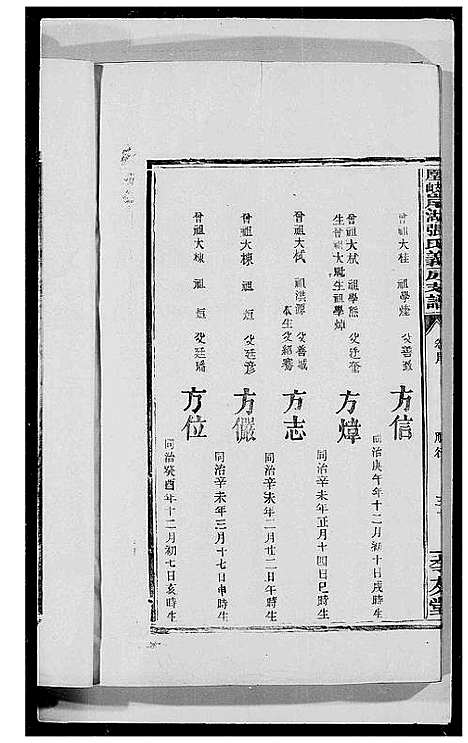 張氏義房支譜
孝友堂
曾祖大桂 祖學煃 父善
方信
同治庚午年十二月初十日戌時生
曾祖大栻 祖學熊 父廷奎
生曾祖大 生祖學焯
方煒
同治辛未年正月十四日巳時生
曾祖大栻 祖洪源 父善城
本生父紹騫
方志
同治辛未年二月廿二日午時生
曾祖大棟 祖 烜 父廷彥
方儼
同治辛未年三月十七日申時生
曾祖大棟 祖 烜 父廷
方位
同治癸酉年十二月初七日亥時生